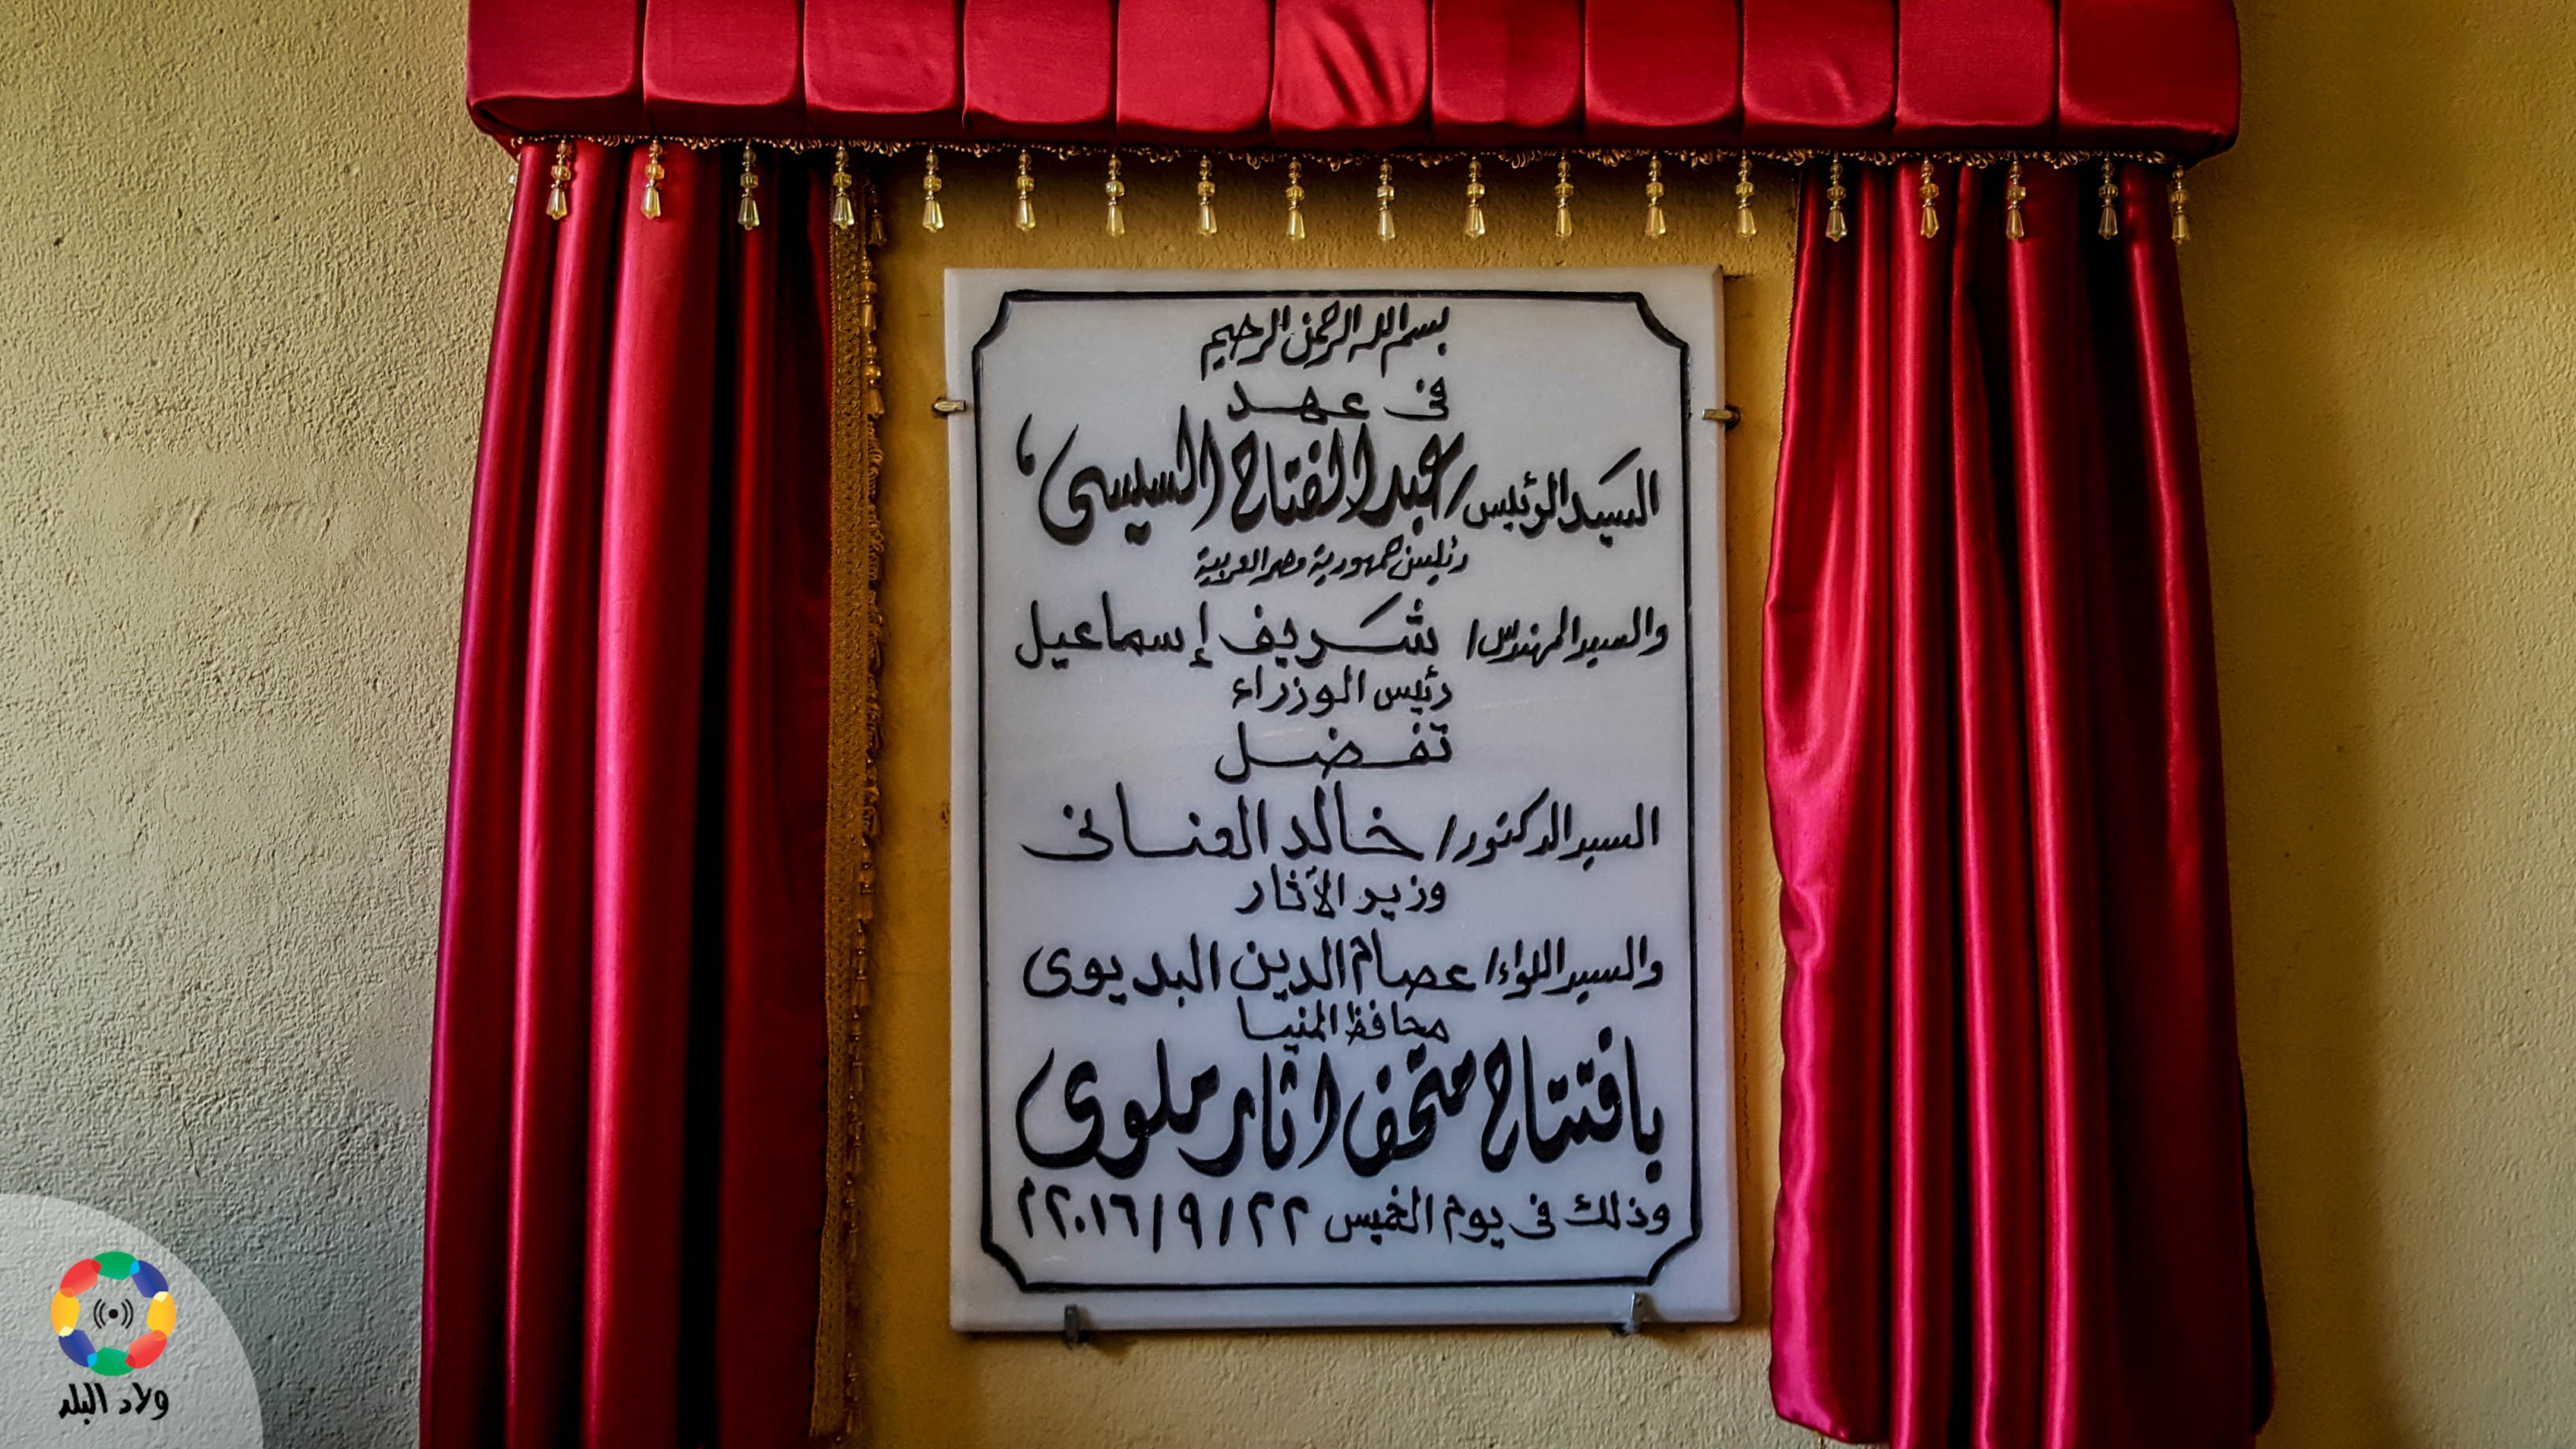 بسم الله الرحمن الرحيم
فى عهد
السيد الرئيس / عبد الفتاح السيسى
رئيس جمهورية مصر العربية
والسيد المهندس / شريف إسماعيل
رئيس الوزراء
تفضل
السيد الدكتور / خالد العنانى
وزير الآثار
والسيد اللواء / عصام الدين البديوى
محافظ المنيا
بافتتاح متحف اثار ملوى
وذلك فى يوم الخميس ٢٢ / ٩ / ٢٠١٦م
ولاد البلد